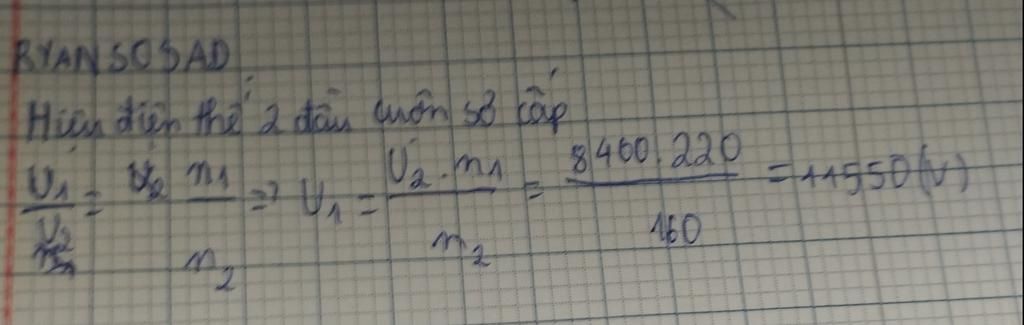 RYANSOSAD
Hiệu điện thế 2 đầu cuộn sơ cấp
U1/U2 = n1/n2 => U1 = U2.n1/n2 = 8400.220/160 = 11550 (V)